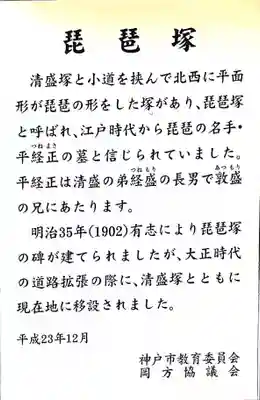 琵琶塚
清盛塚と小道を挟んで北西に平面
形が琵琶の形をした塚があり、琵琶塚
と呼ばれ、江戸時代から琵琶の名手・
つね まさ
平経正の墓と信じられていました。
つね もり
あつ もり
平経正は清盛の弟経盛の長男で敦盛
の兄にあたります。
明治35年(1902)有志により琵琶塚
の碑が建てられましたが、大正時代
の道路拡張の際に、清盛塚とともに
現在地に移設されました。
平成23年12月
神戸市教育委員会
岡方協議会